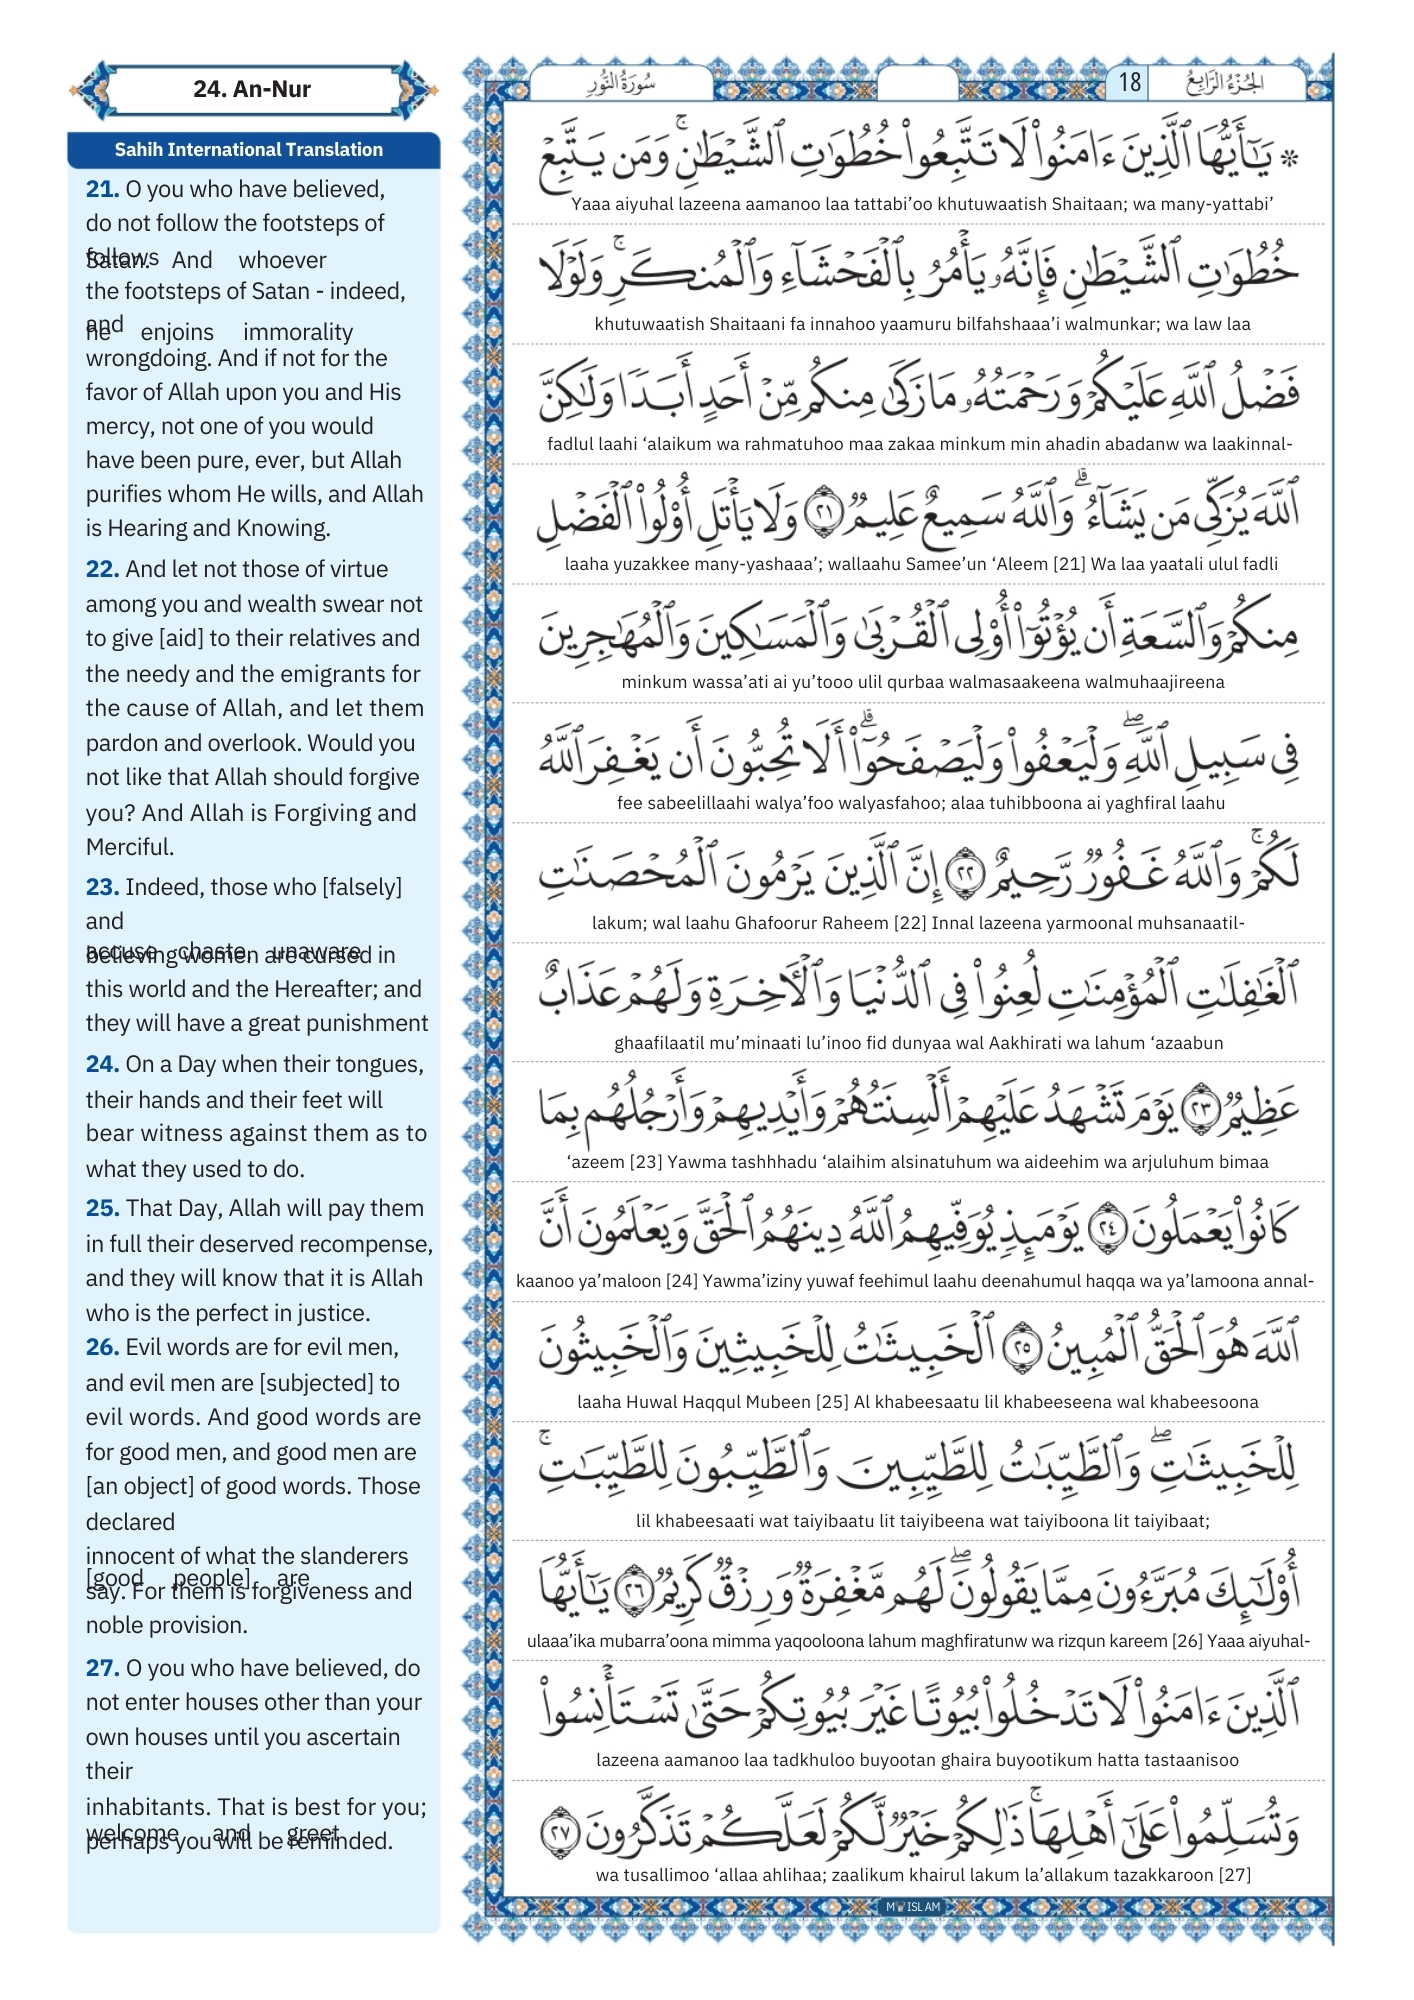 24. An-Nur
Sahih International Translation
21. O you who have believed,
do not follow the footsteps of
Satan. And whoever
follows
the footsteps of Satan - indeed,
he enjoins immorality
and
wrongdoing. And if not for the
favor of Allah upon you and His
mercy, not one of you would
have been pure, ever, but Allah
purifies whom He wills, and Allah
is Hearing and Knowing.
22. And let not those of virtue
among you and wealth swear not
to give [aid] to their relatives and
the needy and the emigrants for
the cause of Allah, and let them
pardon and overlook. Would you
not like that Allah should forgive
you? And Allah is Forgiving and
Merciful.
23. Indeed, those who [falsely]
accuse chaste, unaware
and
believing women are cursed in
this world and the Hereafter; and
they will have a great punishment
24. On a Day when their tongues,
their hands and their feet will
bear witness against them as to
what they used to do.
25. That Day, Allah will pay them
in full their deserved recompense,
and they will know that it is Allah
who is the perfect in justice.
26. Evil words are for evil men,
and evil men are [subjected] to
evil words. And good words are
for good men, and good men are
[an object] of good words. Those
[good people] are
declared
innocent of what the slanderers
say. For them is forgiveness and
noble provision.
27. O you who have believed, do
not enter houses other than your
own houses until you ascertain
welcome and greet
their
inhabitants. That is best for you;
perhaps you will be reminded.
سُورَةُ النُّورِ
18
الجُزْءُ الرَّابِعُ
۞ يَـٰٓأَيُّهَا ٱلَّذِينَ ءَامَنُوا۟ لَا تَتَّبِعُوا۟ خُطُوَٰتِ ٱلشَّيْطَـٰنِ ۚ وَمَن يَتَّبِعْ
Yaaa aiyuhal lazeena aamanoo laa tattabi’oo khutuwaatish Shaitaan; wa many-yattabi’
خُطُوَٰتِ ٱلشَّيْطَـٰنِ فَإِنَّهُۥ يَأْمُرُ بِٱلْفَحْشَآءِ وَٱلْمُنكَرِ ۚ وَلَوْلَا
khutuwaatish Shaitaani fa innahoo yaamuru bilfahshaaa’i walmunkar; wa law laa
فَضْلُ ٱللَّهِ عَلَيْكُمْ وَرَحْمَتُهُۥ مَا زَكَىٰ مِنكُم مِّنْ أَحَدٍ أَبَدًا وَلَـٰكِنَّ
fadlul laahi ‘alaikum wa rahmatuhoo maa zakaa minkum min ahadin abadanw wa laakinnal-
ٱللَّهَ يُزَكِّى مَن يَشَآءُ ۗ وَٱللَّهُ سَمِيعٌ عَلِيمٌ ٢١ وَلَا يَأْتَلِ أُو۟لُوا۟ ٱلْفَضْلِ
laaha yuzakkee many-yashaaa’; wallaahu Samee’un ‘Aleem [21] Wa laa yaatali ulul fadli
مِنكُمْ وَٱلسَّعَةِ أَن يُؤْتُوٓا۟ أُو۟لِى ٱلْقُرْبَىٰ وَٱلْمَسَـٰكِينَ وَٱلْمُهَـٰجِرِينَ
minkum wassa’ati ai yu’tooo ulil qurbaa walmasaakeena walmuhaajireena
فِى سَبِيلِ ٱللَّهِ ۖ وَلْيَعْفُوا۟ وَلْيَصْفَحُوٓا۟ ۗ أَلَا تُحِبُّونَ أَن يَغْفِرَ ٱللَّهُ
fee sabeelillaahi walya’foo walyasfahoo; alaa tuhibboona ai yaghfiral laahu
لَكُمْ ۚ وَٱللَّهُ غَفُورٌ رَّحِيمٌ ٢٢ إِنَّ ٱلَّذِينَ يَرْمُونَ ٱلْمُحْصَنَـٰتِ
lakum; wal laahu Ghafoorur Raheem [22] Innal lazeena yarmoonal muhsanaatil-
ٱلْغَـٰفِلَـٰتِ ٱلْمُؤْمِنَـٰتِ لُعِنُوا۟ فِى ٱلدُّنْيَا وَٱلْـَٔاخِرَةِ وَلَهُمْ عَذَابٌ
ghaafilaatil mu’minaati lu’inoo fid dunyaa wal Aakhirati wa lahum ‘azaabun
عَظِيمٌ ٢٣ يَوْمَ تَشْهَدُ عَلَيْهِمْ أَلْسِنَتُهُمْ وَأَيْدِيهِمْ وَأَرْجُلُهُم بِمَا
‘azeem [23] Yawma tashhhadu ‘alaihim alsinatuhum wa aideehim wa arjuluhum bimaa
كَانُوا۟ يَعْمَلُونَ ٢٤ يَوْمَئِذٍ يُوَفِّيهِمُ ٱللَّهُ دِينَهُمُ ٱلْحَقَّ وَيَعْلَمُونَ أَنَّ
kaanoo ya’maloon [24] Yawma’iziny yuwaf feehimul laahu deenahumul haqqa wa ya’lamoona annal-
ٱللَّهَ هُوَ ٱلْحَقُّ ٱلْمُبِينُ ٢٥ ٱلْخَبِيثَـٰتُ لِلْخَبِيثِينَ وَٱلْخَبِيثُونَ
laaha Huwal Haqqul Mubeen [25] Al khabeesaatu lil khabeeseena wal khabeesoona
لِلْخَبِيثَـٰتِ ۖ وَٱلطَّيِّبَـٰتُ لِلطَّيِّبِينَ وَٱلطَّيِّبُونَ لِلطَّيِّبَـٰتِ ۚ
lil khabeesaati wat taiyibaatu lit taiyibeena wat taiyiboona lit taiyibaat;
أُو۟لَـٰٓئِكَ مُبَرَّءُونَ مِمَّا يَقُولُونَ ۖ لَهُم مَّغْفِرَةٌ وَرِزْقٌ كَرِيمٌ ٢٦ يَـٰٓأَيُّهَا
ulaaa’ika mubarra’oona mimma yaqooloona lahum maghfiratunw wa rizqun kareem [26] Yaaa aiyuhal-
ٱلَّذِينَ ءَامَنُوا۟ لَا تَدْخُلُوا۟ بُيُوتًا غَيْرَ بُيُوتِكُمْ حَتَّىٰ تَسْتَأْنِسُوا۟
lazeena aamanoo laa tadkhuloo buyootan ghaira buyootikum hatta tastaanisoo
وَتُسَلِّمُوا۟ عَلَىٰٓ أَهْلِهَا ۚ ذَٰلِكُمْ خَيْرٌ لَّكُمْ لَعَلَّكُمْ تَذَكَّرُونَ ٢٧
wa tusallimoo ‘allaa ahlihaa; zaalikum khairul lakum la’allakum tazakkaroon [27]
ISLAM